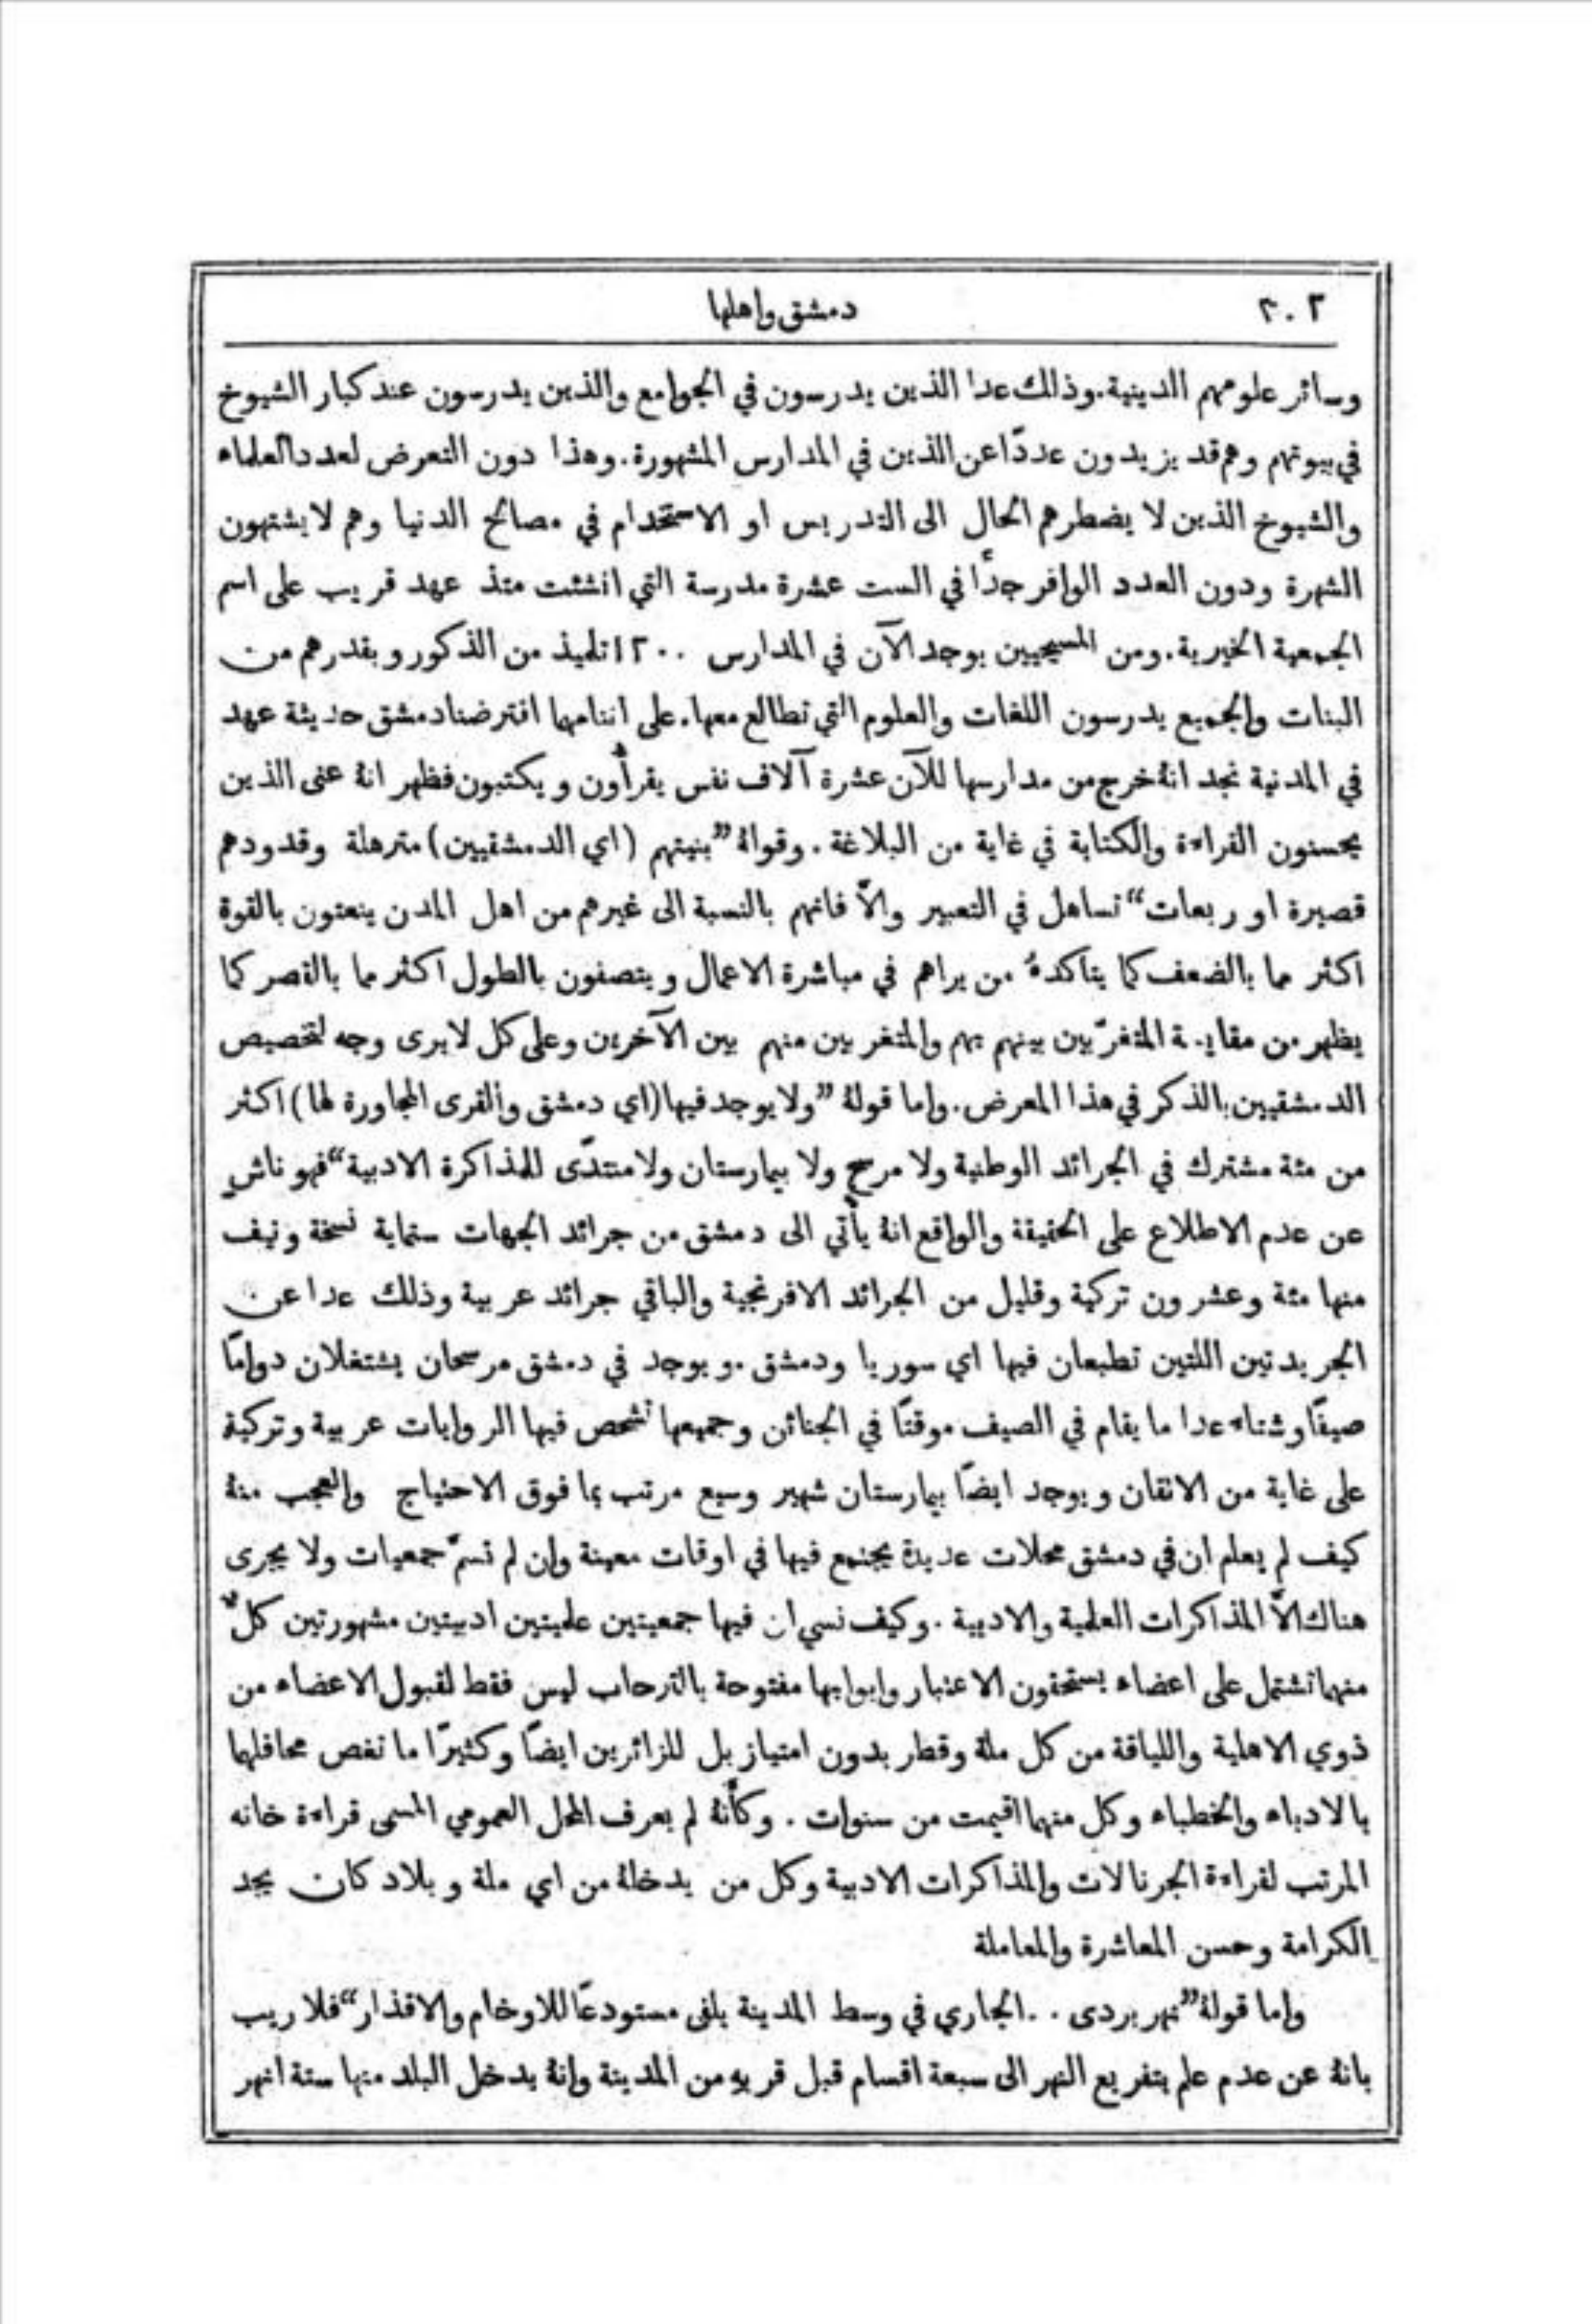 ٣٠٢ دمشق واهلها
وسائر علومهم الدينية. وذلك عدا الذين يدرسون في الجوامع والذين يدرسون عند كبار الشيوخ
في بيوتهم وهم قد يزيدون عددًا عن الذين في المدارس المشهورة. وهذا دون التعرض لعدد العلماء
والشيوخ الذين لا يضطرهم الحال الى التدريس او الاستخدام في مصالح الدنيا وهم لا يشتهون
الشهرة ودون العدد الوافر جدًّا في الست عشرة مدرسة التي انشئت منذ عهد قريب على اسم
الجمعية الخيرية. ومن المسيحيين يوجد الآن في المدارس ١٢٠٠ تلميذ من الذكور وبقدرهم من
البنات والجميع يدرسون اللغات والعلوم التي تطالع معها. على اننا مهما افترضنا دمشق حديثة عهد
في المدنية نجد انهُ خرج من مدارسها للآن عشرة آلاف نفس يقرأون ويكتبون فظهر انهُ عنى الذين
يحسنون القراءة والكتابة في غاية من البلاغة. وقولهُ ”بنيتهم (اي الدمشقيين) مترهلة وقدودهم
قصيرة او ربعات“ تساهل في التعبير والاّ فانهم بالنسبة الى غيرهم من اهل المدن ينعتون بالقوة
اكثر مما بالضعف كما يتأكدهُ من يراهم في مباشرة الاعمال ويتصفون بالطول اكثر مما بالقصر كما
يظهر من مقايسة المتغرّبين بينهم بهم والمتغربين منهم بين الآخرين وعلى كل لا يرى وجه لتخصيص
الدمشقيين بالذكر في هذا المعرض. واما قولهُ ”ولا يوجد فيها (اي دمشق والقرى المجاورة لها) اكثر
من مئة مشترك في الجرائد الوطنية ولا مرسح ولا بيمارستان ولا منتدًى للمذاكرة الادبية“ فهو ناشٍ
عن عدم الاطلاع على الحقيقة والواقع انهُ يأتي الى دمشق من جرائد الجهات ستماية نسخة ونيف
منها مئة وعشرون تركية وقليل من الجرائد الافرنجية والباقي جرائد عربية وذلك عدا عن
الجريدتين اللتين تطبعان فيها اي سوريا ودمشق. ويوجد في دمشق مرسحان يشتغلان دوامًا
صيفًا وشتاء عدا ما يقام في الصيف موقتًا في الجنائن وجميعها تشخص فيها الروايات عربية وتركية
على غاية من الاتقان ويوجد ايضًا بيمارستان شهير وسيع مرتب بما فوق الاحتياج والعجب منهُ
كيف لم يعلم ان في دمشق محلات عديدة يجتمع فيها في اوقات معينة وان لم تسمَّ جمعيات ولا يجرى
هناك الاّ المذاكرات العلمية والادبية. وكيف نسي ان فيها جمعيتين علميتين ادبيتين مشهورتين كلٌّ
منهما تشتمل على اعضاء يستحقون الاعتبار وابوابها مفتوحة بالترحاب ليس فقط لقبول الاعضاء من
ذوي الاهلية واللياقة من كل ملة وقطر بدون امتياز بل للزائرين ايضًا وكثيرًا ما تغص محافلها
بالادباء والخطباء وكل منهما اقيمت من سنوات. وكأنهُ لم يعرف المحل العمومي المسمى قراءة خانه
المرتب لقراءة الجرنالات والمذاكرات الادبية وكل من يدخلهُ من اي ملة وبلاد كان يجد
الكرامة وحسن المعاشرة والمعاملة
واما قولهُ ”نهر بردى .. الجاري في وسط المدينة يلفى مستودعًا للاوخام والاقذار“ فلا ريب
بانهُ عن عدم علم بتفريع النهر الى سبعة اقسام قبل قربه من المدينة وانهُ يدخل البلد منها ستة انهر